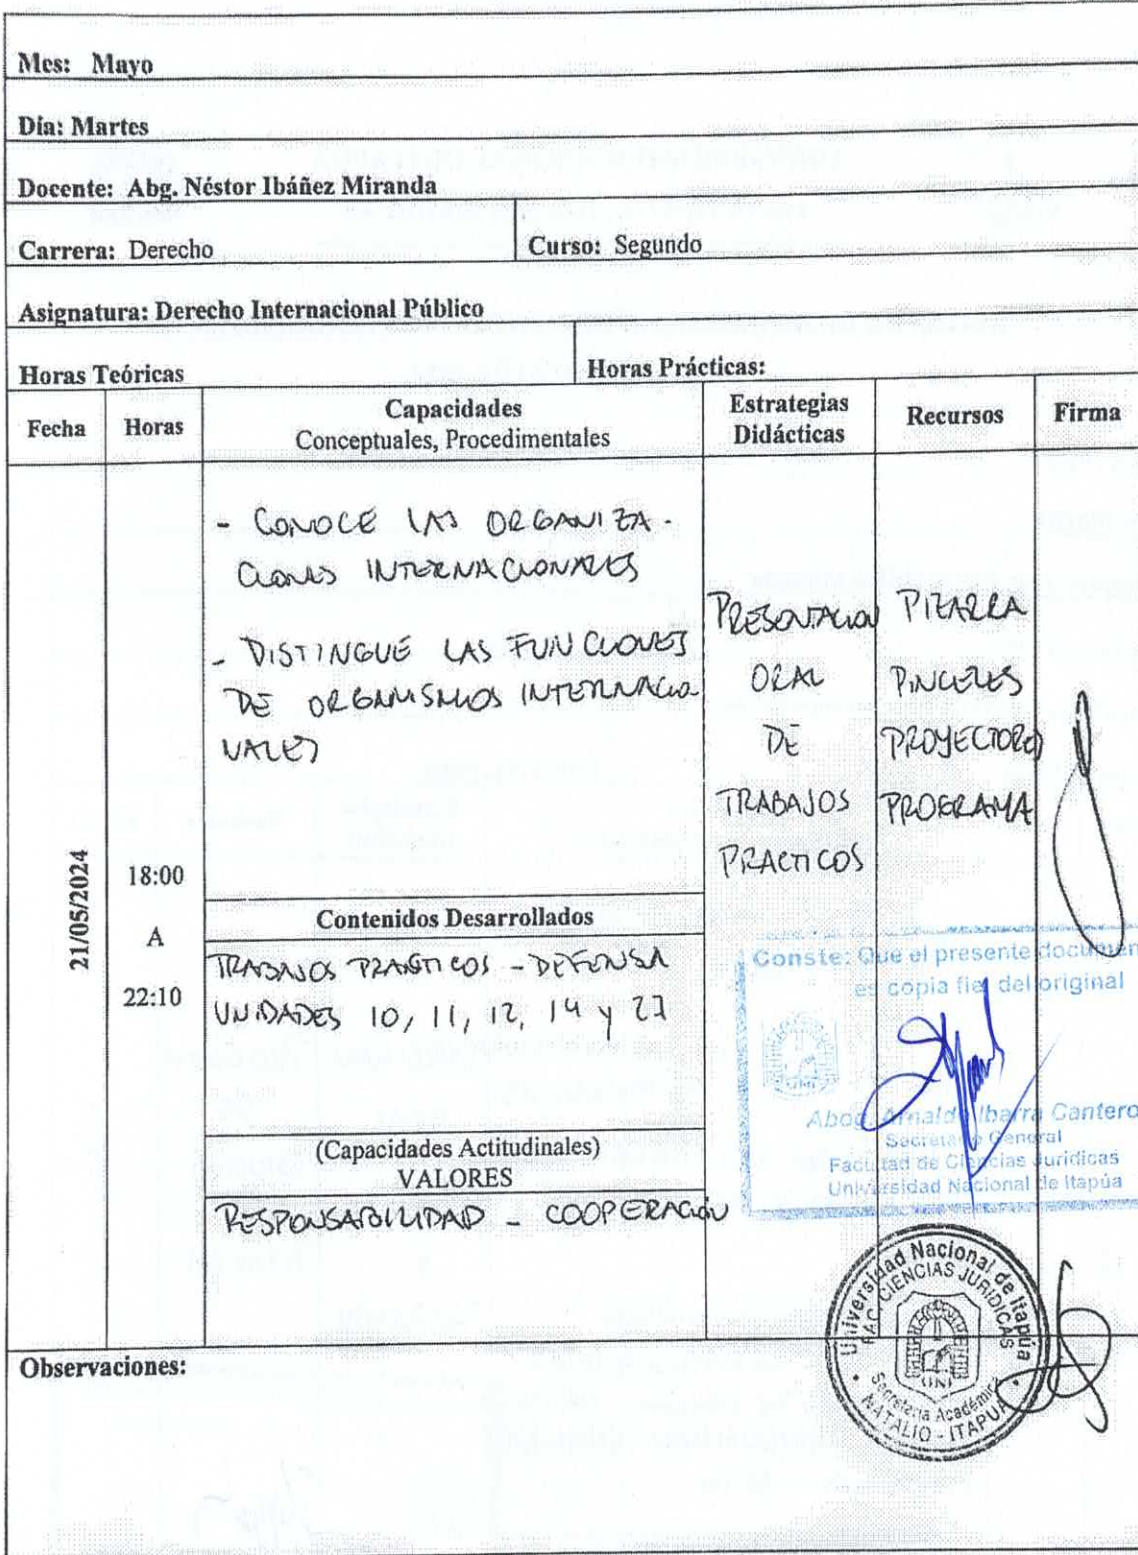 Mes: Mayo
Día: Martes
Docente: Abg. Néstor Ibáñez Miranda
Carrera: Derecho
Curso: Segundo
Asignatura: Derecho Internacional Público
Horas Teóricas
Horas Prácticas:
Fecha
Horas
Capacidades
Conceptuales, Procedimentales
Estrategias
Didácticas
Recursos
Firma
21/05/2024
18:00
A
22:10
- CONOCE LAS ORGANIZA-
CIONES INTERNACIONALES
- DISTINGUE LAS FUNCIONES
DE ORGANISMOS INTERNACIO
NALES
Contenidos Desarrollados
TRABAJOS PRACTICOS - DEFENSA
UNIDADES 10, 11, 12, 14 y
(Capacidades Actitudinales)
VALORES
RESPONSABILIDAD - COOPERACIÓN
PRESENTACION
ORAL
DE
TRABAJOS
PRACTICOS
PIZARRA
PINCELES
PROYECTORES
PROGRAMA
Conste: Que el presente documen
es copia fiel del original
Abog. Arnaldo Ibarra Cantero
Secretario General
Facultad de Ciencias Juridicas
Universidad Nacional de Itapúa
Universidad Nacional de Itapúa
FAC. CIENCIAS JURIDICAS
UNI
Secretaria Académica
NATALIO - ITAPUA
Observaciones: